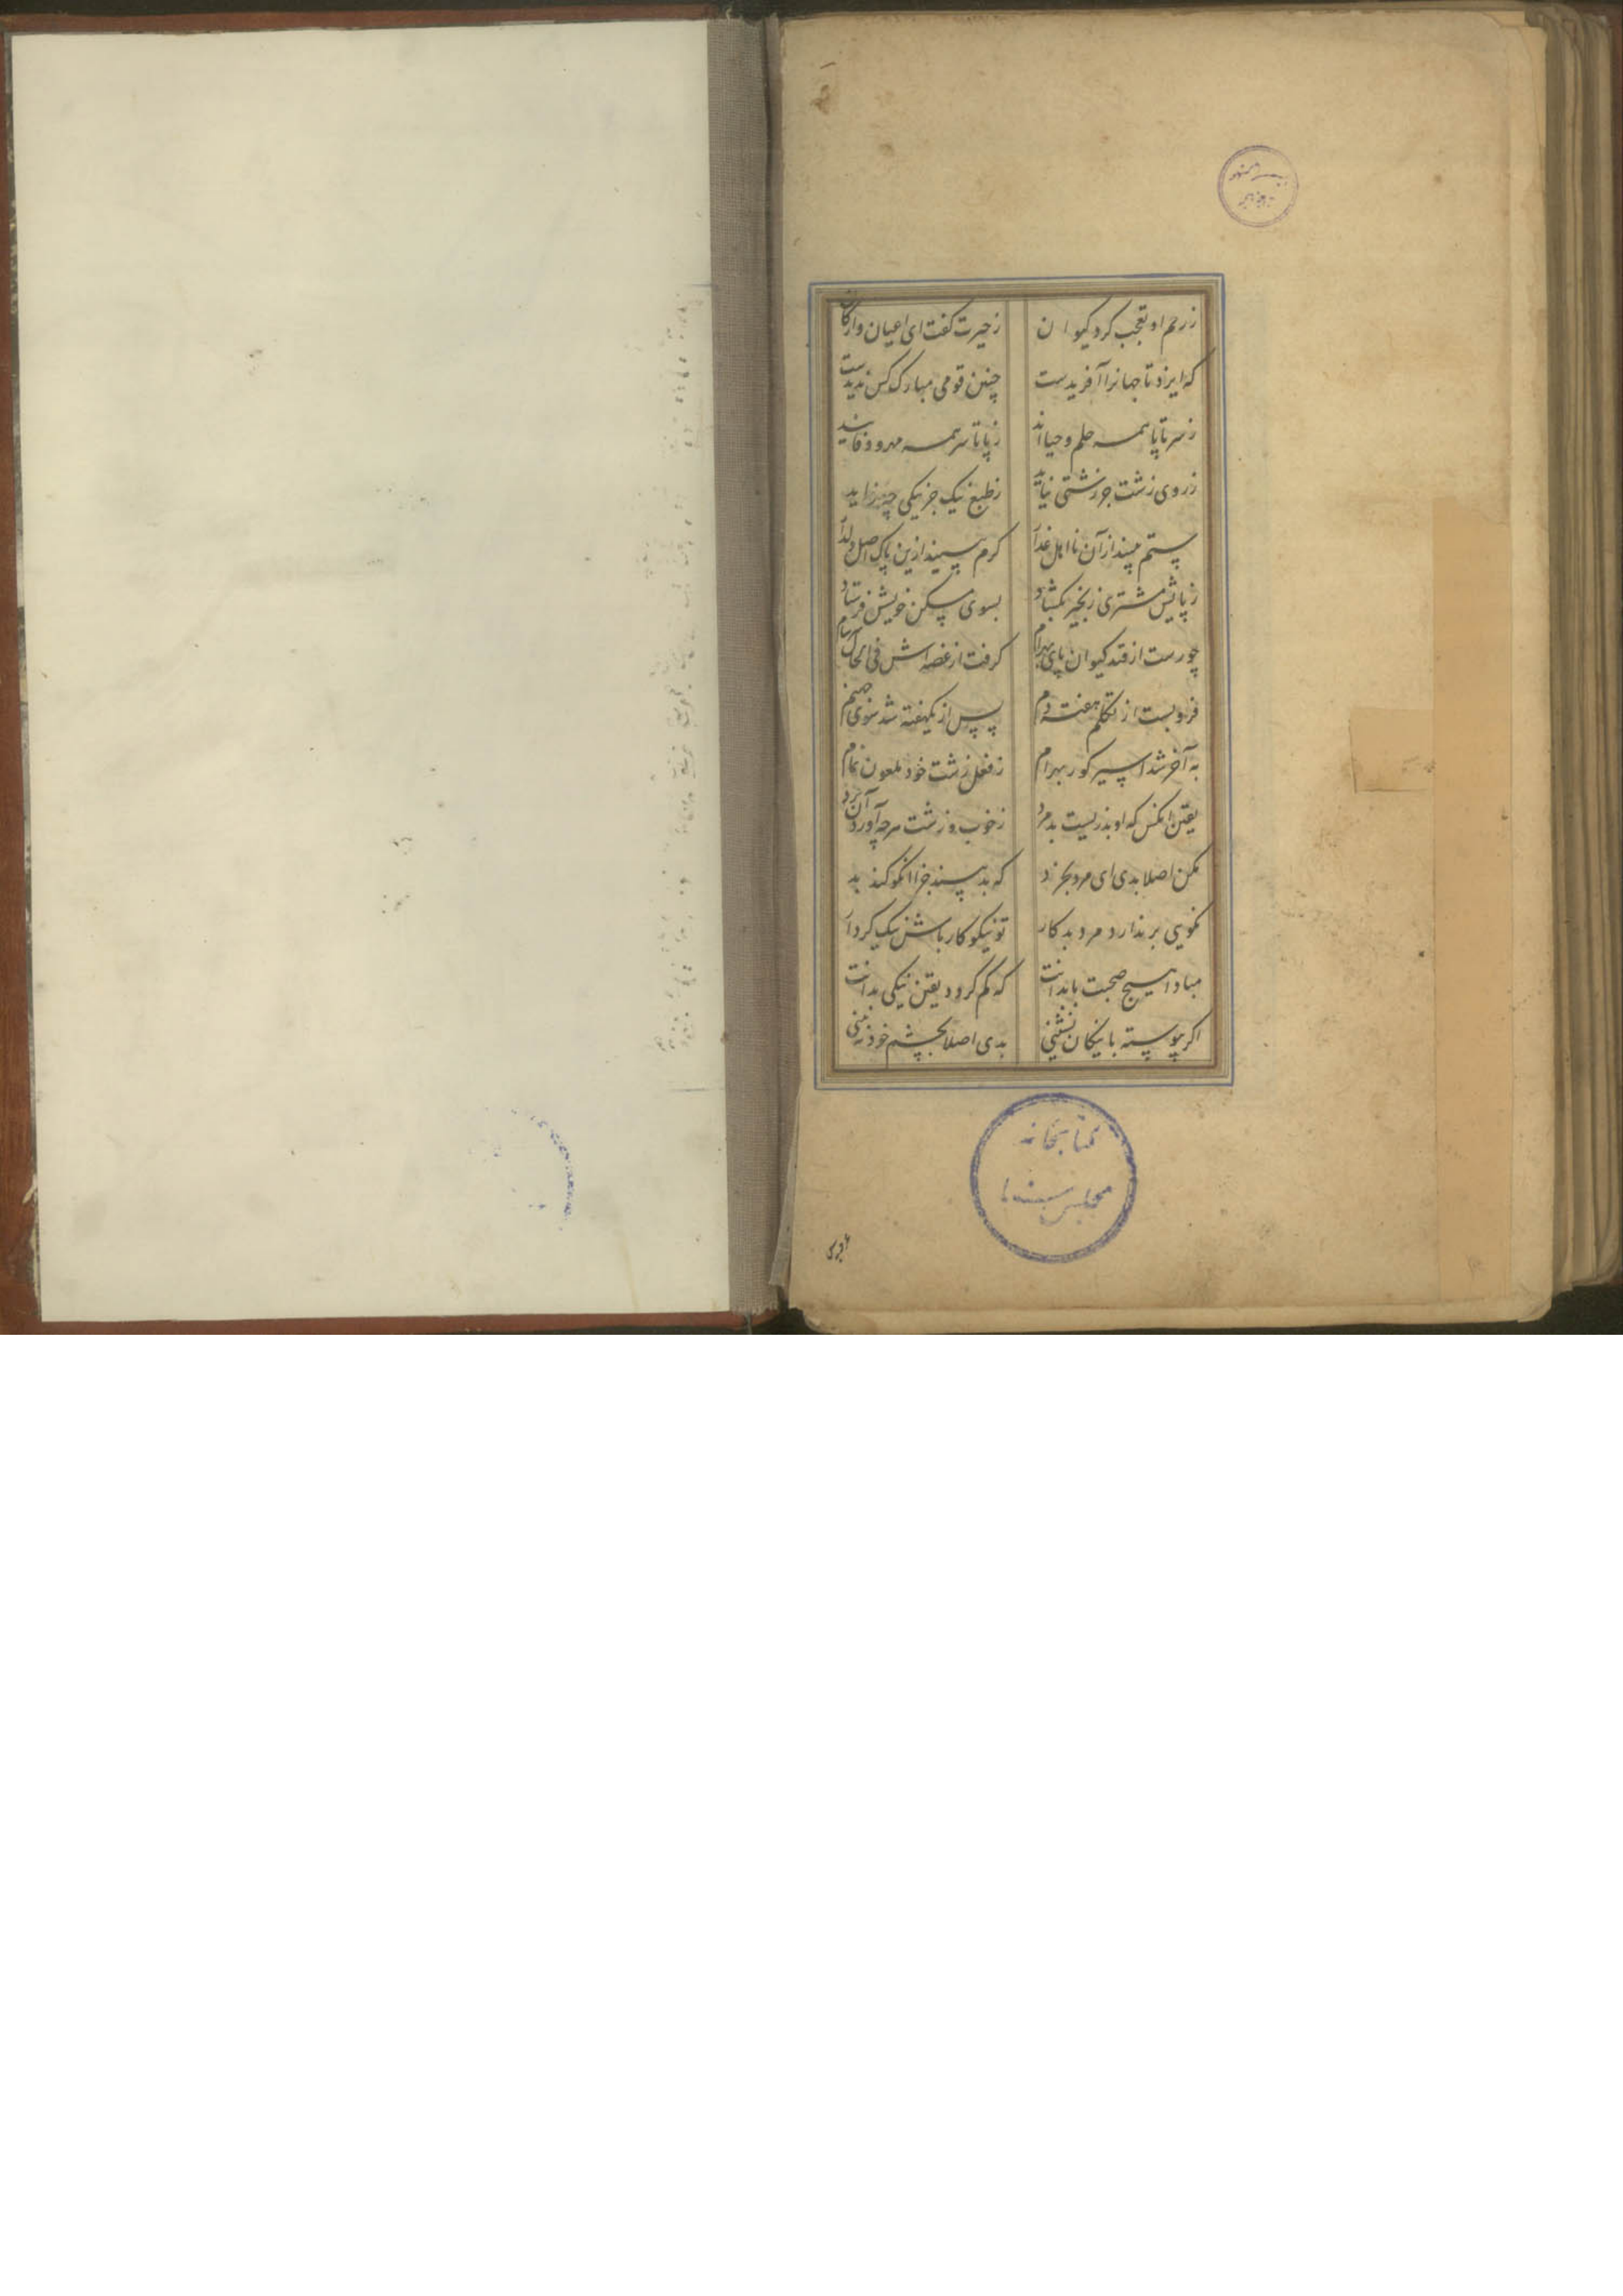 زرحم او تعجب کرد کیوان زحیرت گفت ای اعیان وارکان
که ایزد تا جهانرا آفریدست چنین قومی مبارک کس ندیدست
زسر تا پا همه حلم و حیااند زپا تا سر همه مهر و وفااند
زروی زشت جز زشتی نیاید زطبع نیک جز نیکی چه زاید
ستم بیند از آن نااهل غدار کرم بیند ازین پاک اصل
زپایش مشتری زنجیر بگشاد بسوی مسکن خویشش فرستاد
چو رست از قید کیوان پای بهرام گرفت از غصه اش فی الحال
فرو بست از تکلم هفته دم پس از یکهفته شد سوی جهنم
به آخر شد اسیر گور بهرام زفعل زشت خود ملعون نمام
یقین آنکس که او بد زیست بد مرد زخوب و زشت هرچه آورد آن برد
مکن اصلا بدی ای مرد بخرد که بد بیند جزا آنکو کند بد
نکویی بر ندارد مرد بد کار تو نیکو کار باش نیک کردار
مبادا هیچ صحبت با بدانت که کم گردد یقین نیکی بدانت
اگر پیوسته با نیکان نشینی بدی اصلا بچشم خود نبینی
کتابخانه
مجلس سنا